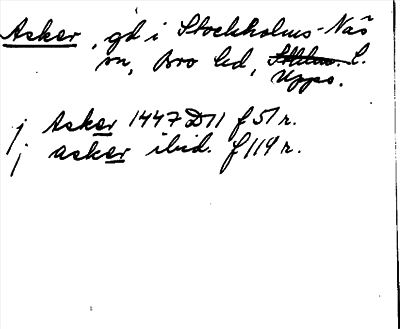 Asker, gd i Stockholms-Näs
sn, Bro hd, Sthlms. L.
Upps.
j Asker 1447 D11 f 51 r.
j asker ibid. f 119 r.